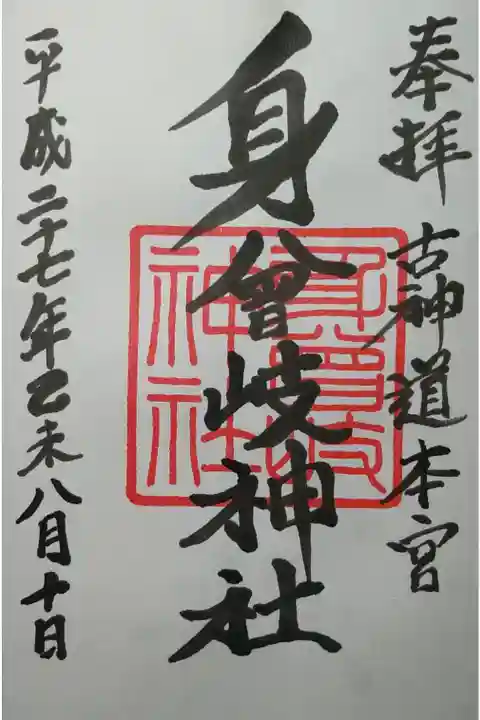 奉拝 古神道本宮
身曾岐神社
身曾岐神社
平成二十七年乙未八月十日